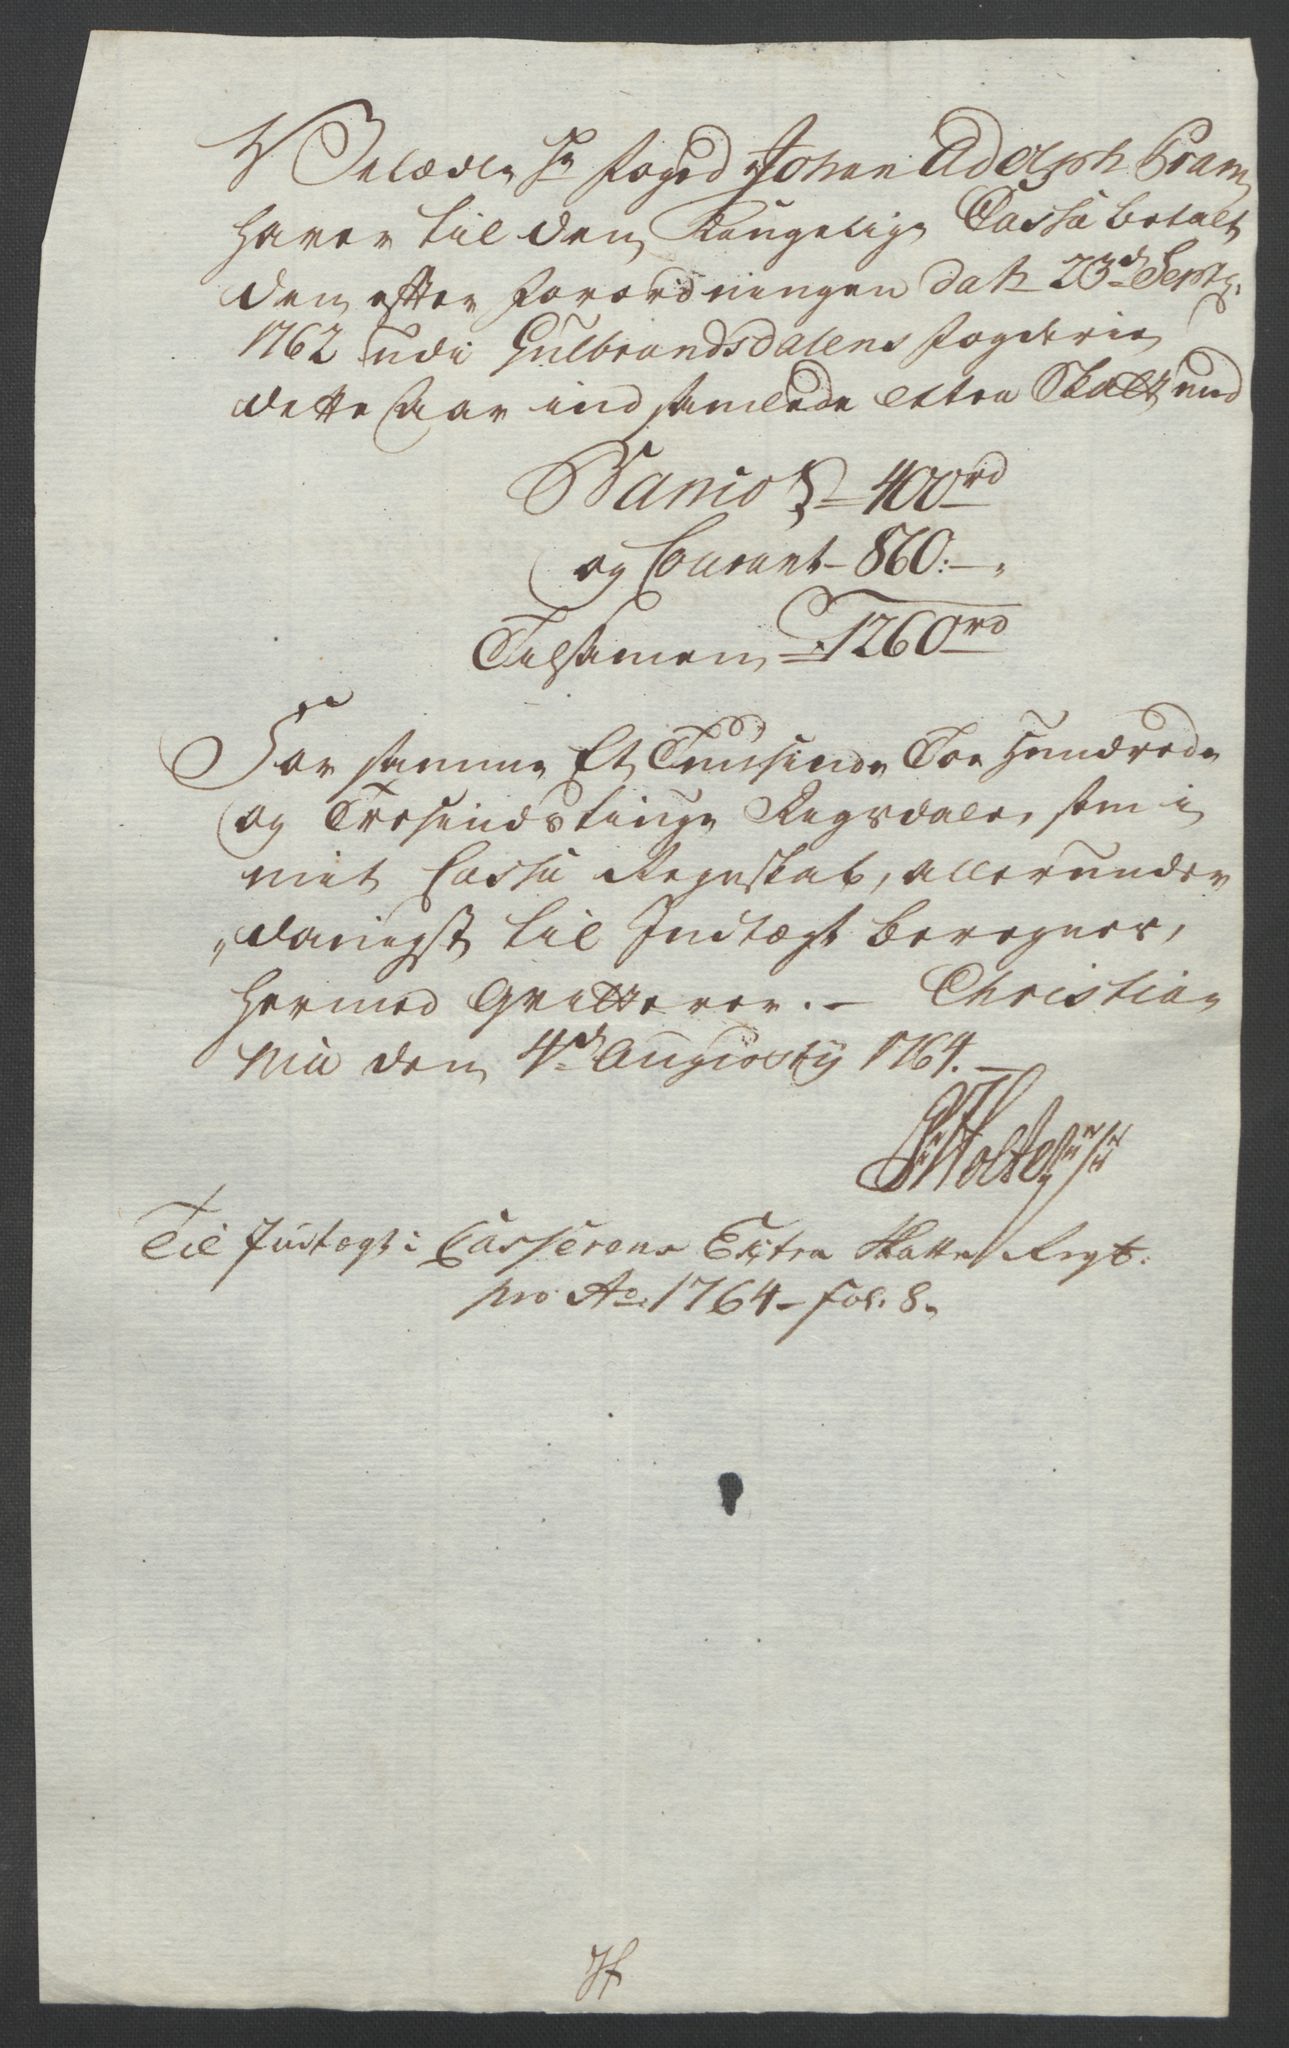 Velædle Hr Foged Johan Adolph Pram
haver til den Kongelige Cassa betalt
den efter Forordningen dat 23d Septr.
1762 udi Gulbrandsdalens Fogderie
dette Aar indsamlede Extra Skatt med
Banco 400rd
og Courant - 860:-„
Tilsamen = 1260rd
For samme Et Tusinde Toe Hundrede
og Tresindstiuge Rigsdaler, som i
mit Cassa Regnskab, allerunder
„danigst til Indtægt beregnes,
hermed Qvitterer. - Christia
nia den 4d Augusty 1764. -
Holte
Til Indtægt i Casserens Extra Skatte Regt:
pro Ao. 1764 - fol. 8.